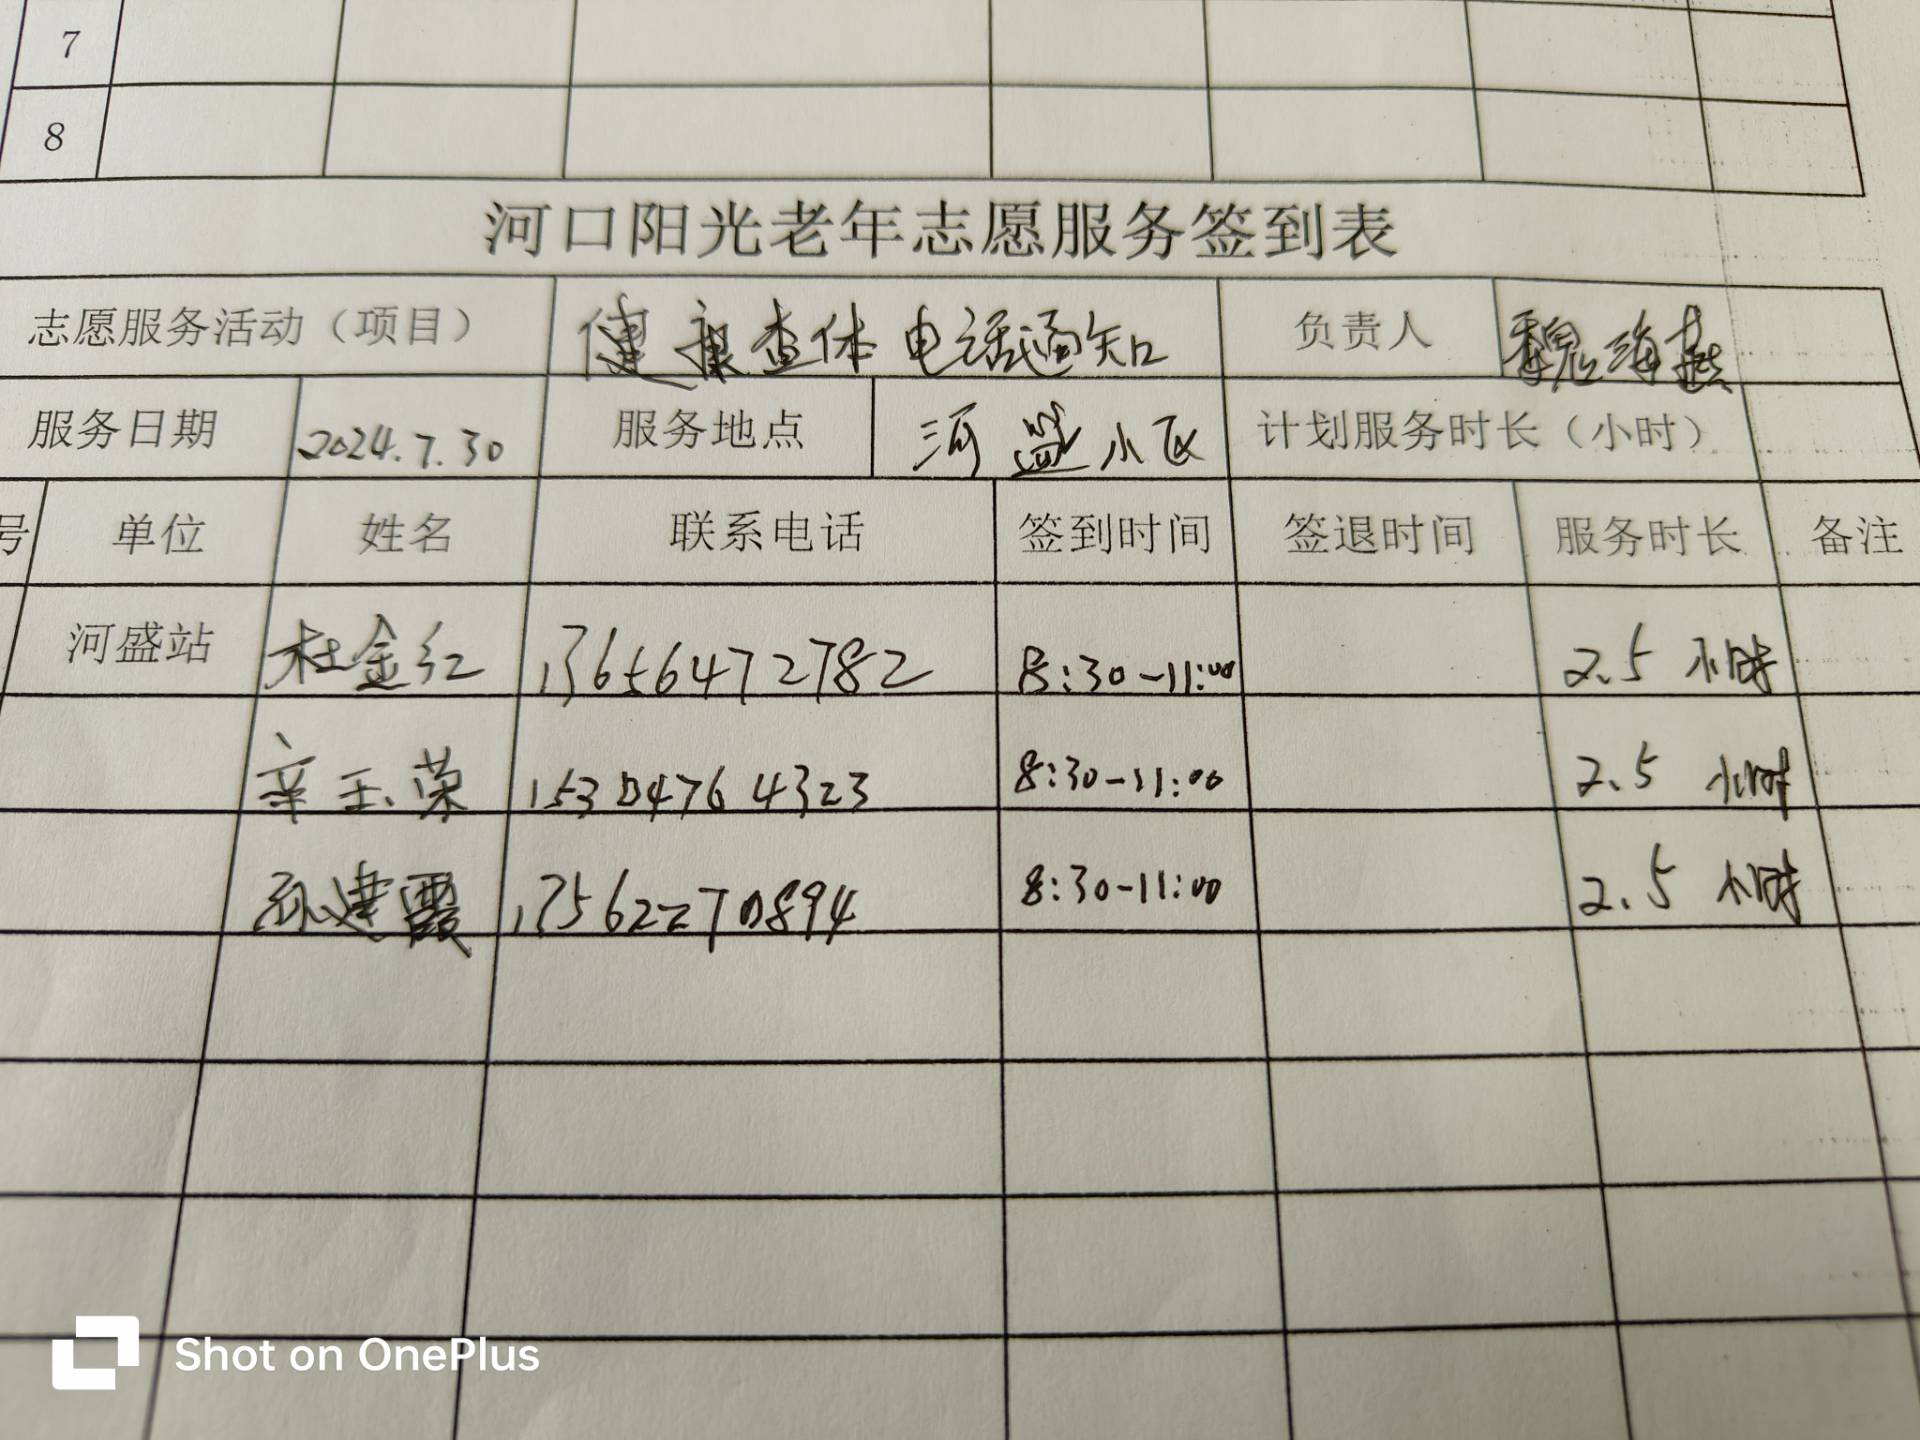 7
8
河口阳光老年志愿服务签到表
志愿服务活动（项目） 健康查体电话通知 负责人 魏海
服务日期 2024.7.30 服务地点 河盛小区 计划服务时长（小时）
号 单位 姓名 联系电话 签到时间 签退时间 服务时长 备注
河盛站 杜金红 13656472782 8:30-11:00 2.5 小时
辛玉荣 15304764323 8:30-11:00 2.5 小时
孙建霞 17562270894 8:30-11:00 2.5 小时
Shot on OnePlus